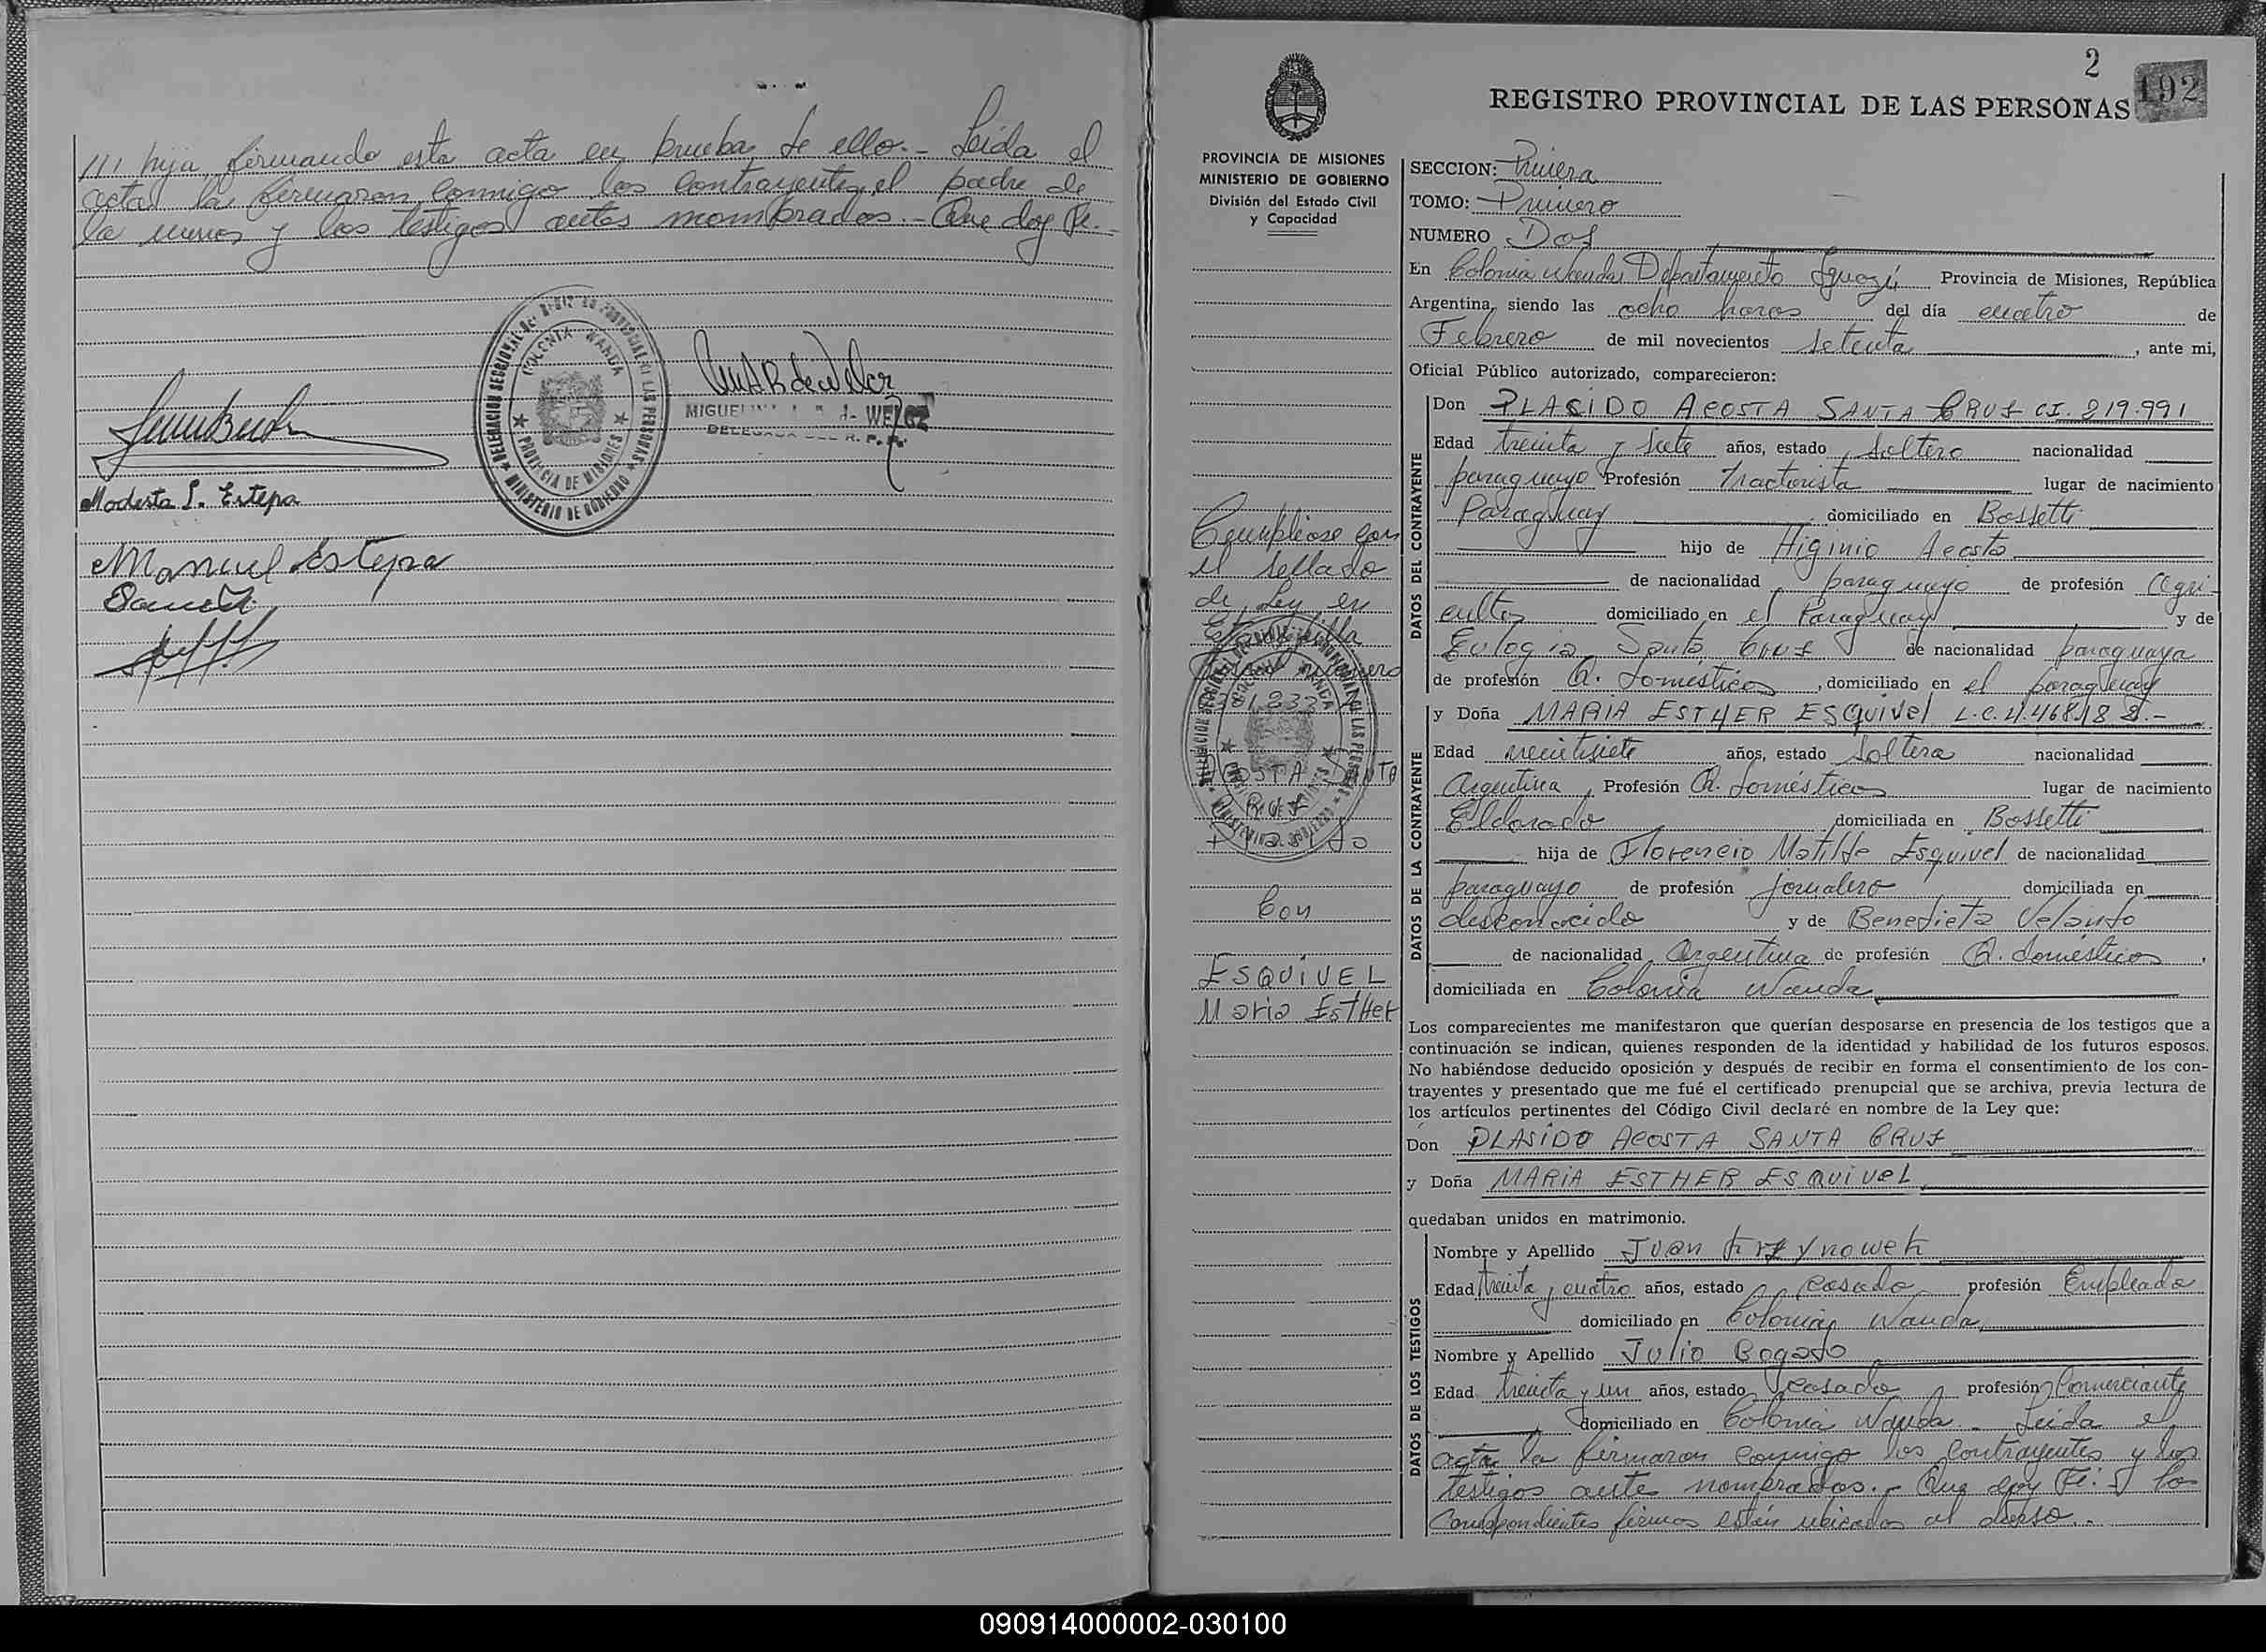 /// hija, firmando esta acta en prueba de ello.- Leida el
acta la firmaron conmigo los contrayentes, el padre de
la menor y los testigos antes mombrados.- Que doy Fe.-
COLONIA WANDA
PROVINCIA DE MISIONES
MINISTERIO DE GOBIERNO
DELEGADA DEL R. P. P.
Modesta I. Estepa
Manuel Estepa
2
192
REGISTRO PROVINCIAL DE LAS PERSONAS
PROVINCIA DE MISIONES
MINISTERIO DE GOBIERNO
División del Estado Civil
y Capacidad
Cumpliose con
el sellado
de Ley en
Estampilla
ACOSTA SANTA
CRUS
Plasido
Con
ESQUIVEL
Maria EstHer
SECCION: Primera
TOMO: Primero
NUMERO Dos
En Colonia Wanda Departamento Iguazú Provincia de Misiones, República
Argentina, siendo las ocho horas del día cuatro de
Febrero de mil novecientos setenta , ante mi,
Oficial Público autorizado, comparecieron:
DATOS DEL CONTRAYENTE
Don PLASIDO ACOSTA SANTA CRUS CI. 219.991
Edad treinta y siete años, estado soltero nacionalidad
paraguayo Profesión Tractorista lugar de nacimiento
Paraguay domiciliado en Bossetti
hijo de Higinio Acosta
de nacionalidad paraguayo de profesión Agri-
cultor domiciliado en el Paraguay y de
Eulogia Santa Crus de nacionalidad paraguaya
de profesión Q. domésticos , domiciliado en el paraguay
DATOS DE LA CONTRAYENTE
y Doña MARIA ESTHER ESQUIVEL L.C. 4.468.182.-
Edad veintisiete años, estado soltera nacionalidad
Argentina , Profesión Q. domésticos lugar de nacimiento
Eldorado domiciliada en Bossetti
hija de Florencio Matilde Esquivel de nacionalidad
paraguayo de profesión jornalero domiciliada en
desconocido y de Benedicta Velando
de nacionalidad Argentina de profesión Q. domésticos ,
domiciliada en Colonia Wanda
Los comparecientes me manifestaron que querían desposarse en presencia de los testigos que a
continuación se indican, quienes responden de la identidad y habilidad de los futuros esposos.
No habiéndose deducido oposición y después de recibir en forma el consentimiento de los con-
trayentes y presentado que me fué el certificado prenupcial que se archiva, previa lectura de
los artículos pertinentes del Código Civil declaré en nombre de la Ley que:
Don PLASIDO ACOSTA SANTA CRUS
y Doña MARIA ESTHER ESQUIVEL
quedaban unidos en matrimonio.
DATOS DE LOS TESTIGOS
Nombre y Apellido Juan
Edad treinta y cuatro años, estado casado profesión Empleado
domiciliado en Colonia Wanda
Nombre y Apellido Julio Bogado
Edad treinta y un años, estado casado profesión Comerciante
domiciliado en Colonia Wanda.- Leida el
acta la firmaron conmigo los contrayentes y los
testigos antes nombrados.- Que doy Fé: y las
Correspondientes firmas están ubicadas al dorso.-
090914000002-030100